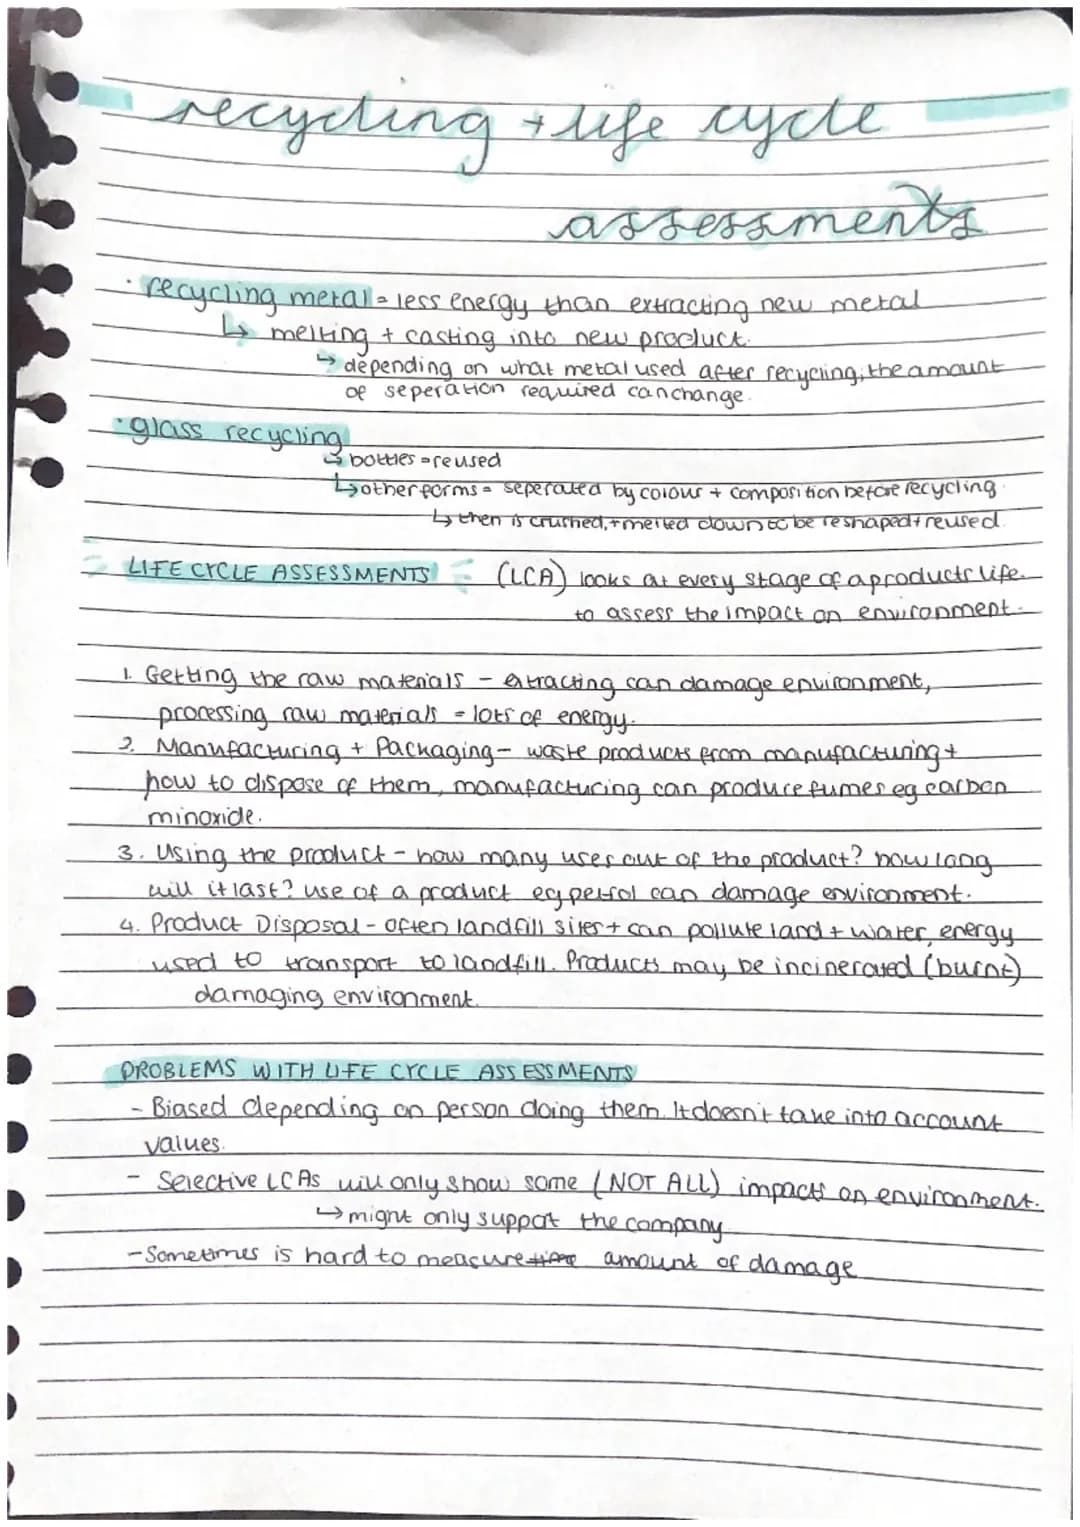 recycling + life cycle
assessments
· recycling metal = less energy than extracting new metal
↳ melting + casting into new product.
↳ depending on what metal used after recycling, the amount
of seperation required can change.
· glass recycling
↳ bottles = reused
↳ other forms = seperated by colour + composition before recycling.
↳ then is crushed, + melted down to be reshaped + reused.
LIFE CYCLE ASSESSMENTS (LCA) looks at every stage of a products life.
to assess the impact on environment.
1. Getting the raw materials - extracting can damage environment,
processing raw materials = lots of energy.
2. Manufacturing + Packaging - waste products from manufacturing +
how to dispose of them, manufacturing can produce fumes eg carbon
minoxide.
3. Using the product - how many uses out of the product? how long
will it last? use of a product eg petrol can damage environment.
4. Product Disposal - often landfill sites + can pollute land + water, energy
used to transport to landfill. Products may be incinerated (burnt)
damaging environment.
PROBLEMS WITH LIFE CYCLE ASSESSMENTS
- Biased depending on person doing them. It doesn't take into account
values.
- Selective LCAs will only show some (NOT ALL) impacts on environment.
↳ might only support the company.
- Sometimes is hard to measure amount of damage